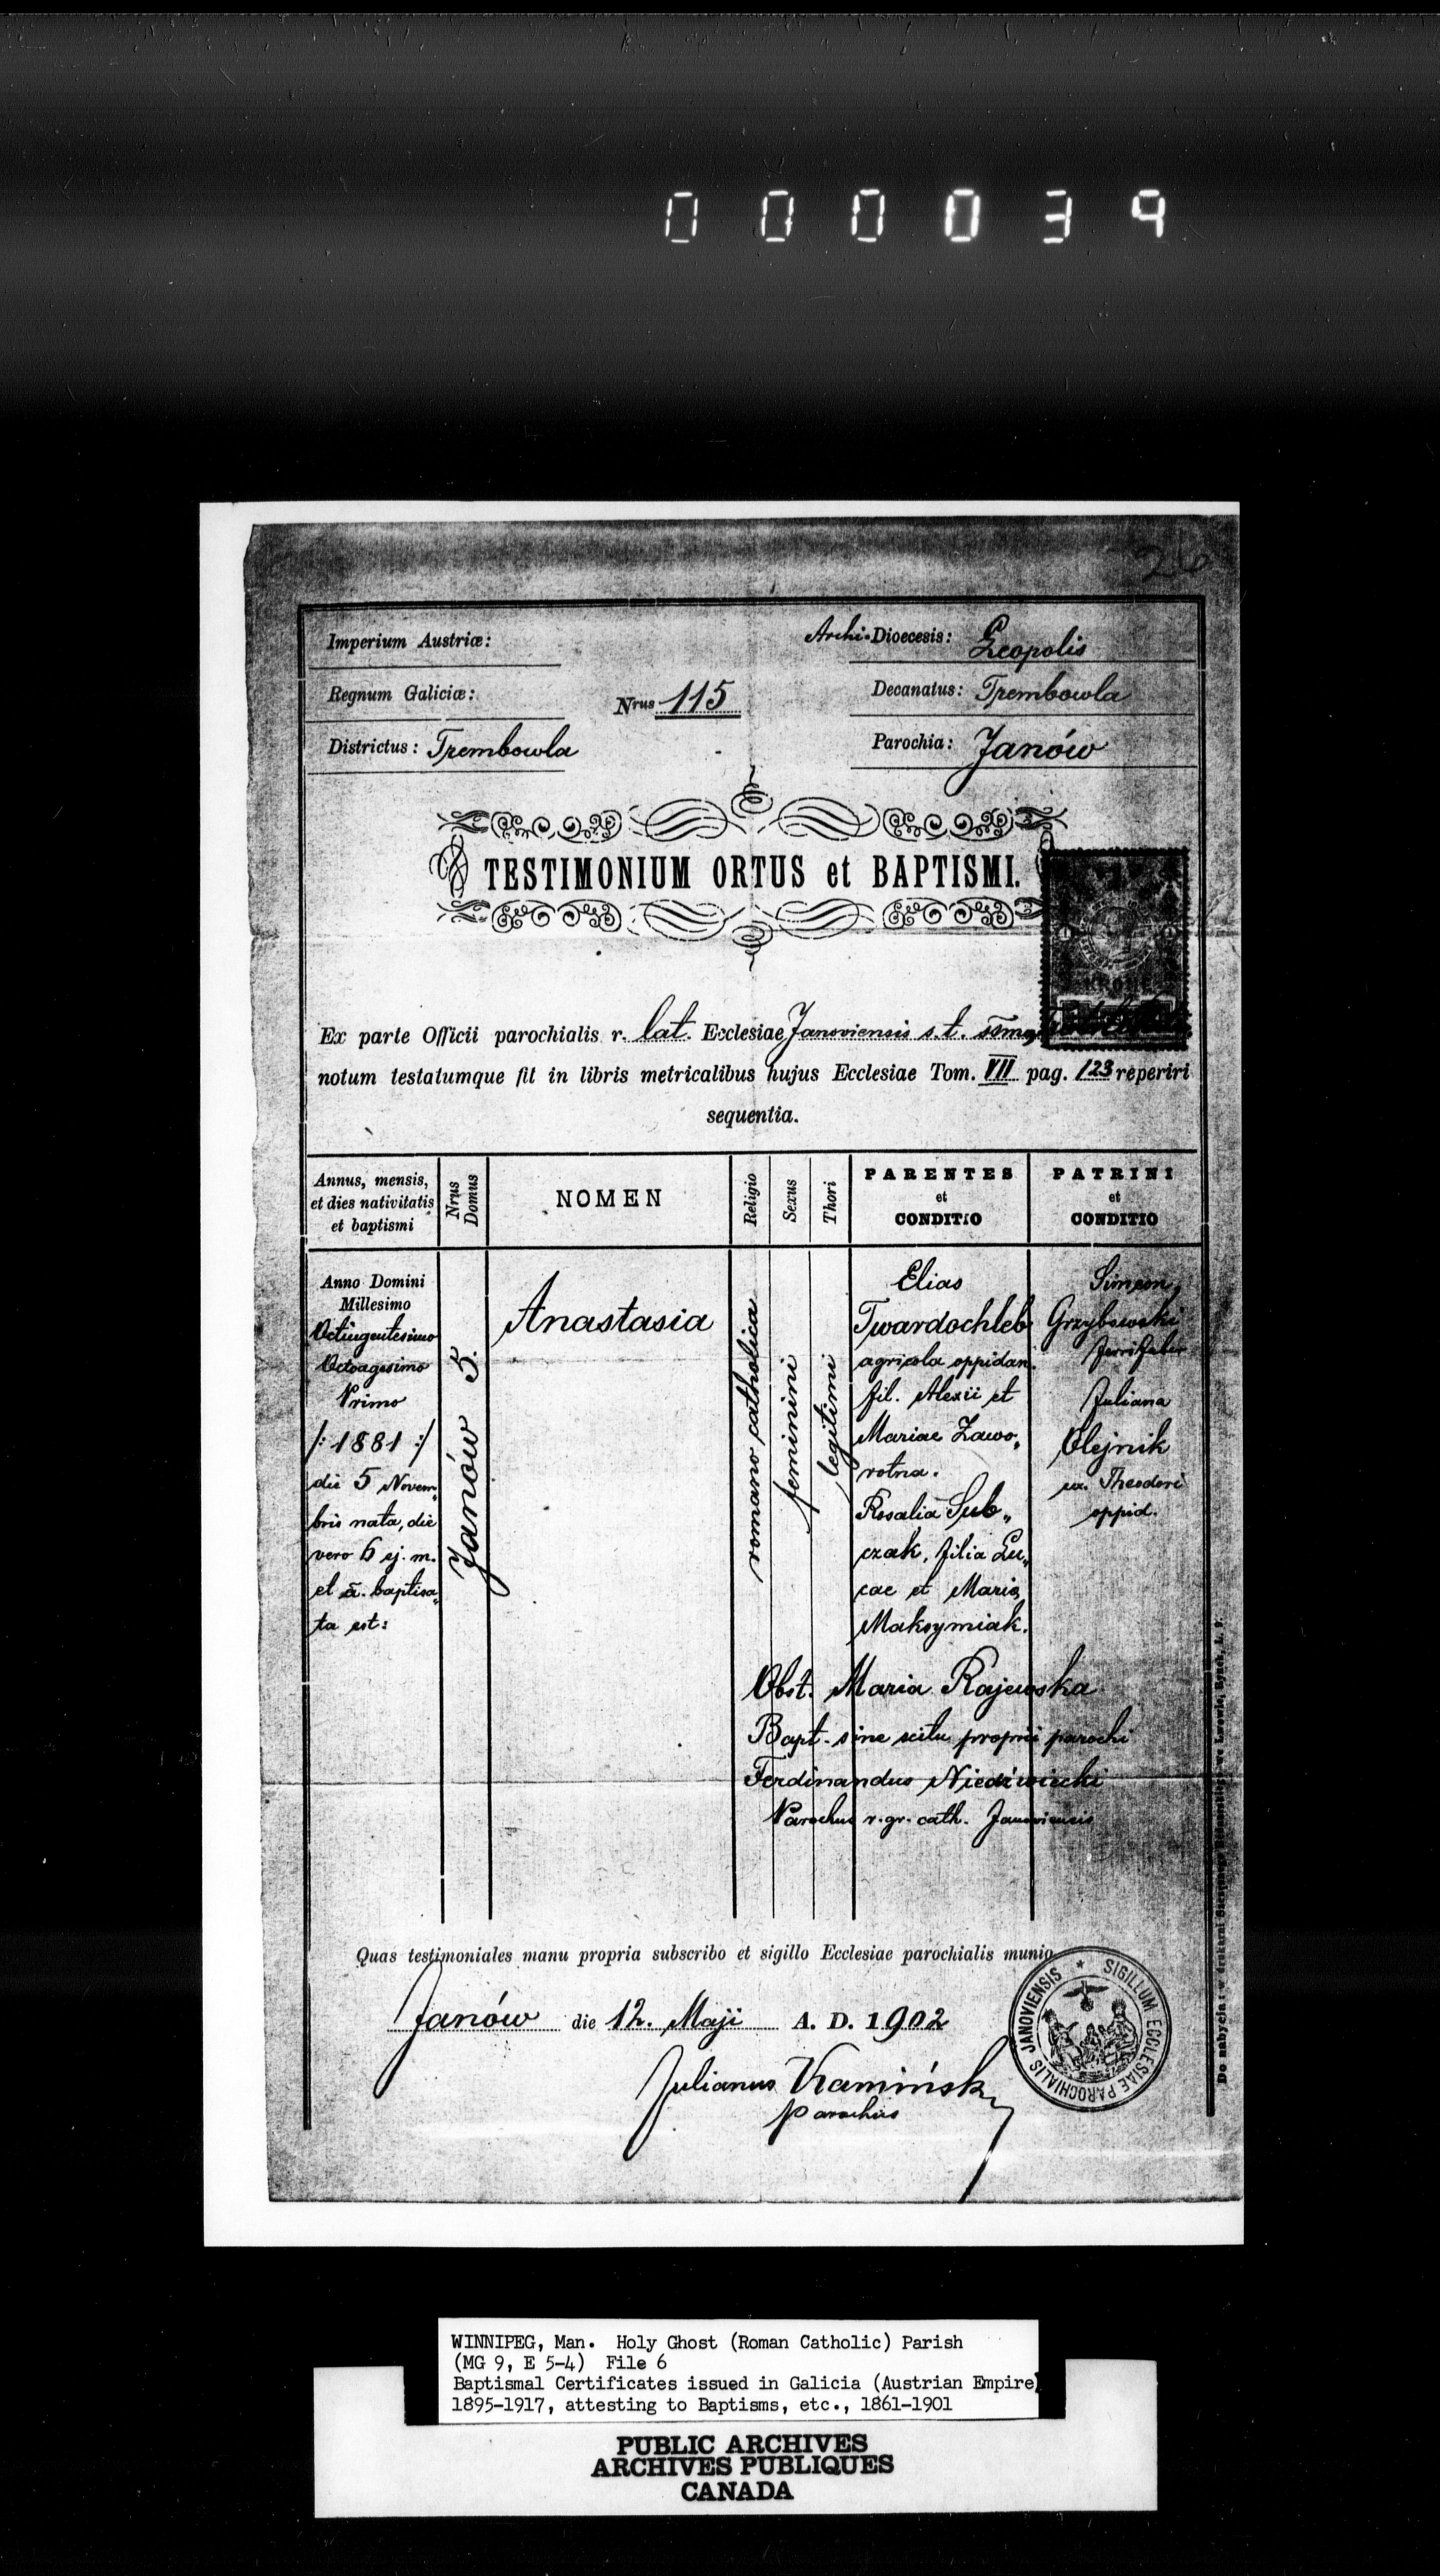 0 0 0 0 3 9
26
Imperium Austriæ:
Archi-Dioecesis: Leopolis
Regnum Galiciæ:
Nrus 115
Decanatus: Trembowla
Districtus: Trembowla
Parochia: Janów
TESTIMONIUM ORTUS et BAPTISMI.
KRONE
Ex parte Officii parochialis r. lat. Ecclesiae Janoviensis s.t. ssmae
notum testatumque fit in libris metricalibus hujus Ecclesiae Tom. VII pag. 123 reperiri
sequentia.
Annus, mensis,
et dies nativitatis
et baptismi
Nrus
Domus
NOMEN
Religio
Sexus
Thori
PARENTES
et
CONDITIO
PATRINI
et
CONDITIO
Anno Domini
Millesimo
Octingentesimo
Octoagesimo
Primo
/: 1881 :/
die 5 Novem„
bris nata, die
vero 6 ej. m.
et a. baptisa„
ta est:
Janów 5.
Anastasia
romano catholica
feminini
legitimi
Elias
Twardochleb
agricola oppidan.
fil. Alexii et
Mariae Zawo„
rotna.
Rosalia Sub„
czak, filia Lu„
cae et Maria
Maksymiak.
Simeon
Grzybowski
ferrifaber
Juliana
Olejnik
ux. Theodori
oppid.
Obst. Maria Rajewska
Bapt. sine scitu proprii parochi
Ferdinandus Niedźwiecki
Parochus r. gr. cath. Janoviensis
Quas testimoniales manu propria subscribo et sigillo Ecclesiae parochialis munio
Janów die 12. Maji A. D. 1902
Julianus Kamiński
parochus
* SIGILLUM ECCLESIAE PAROCHIALIS JANOVIENSIS
WINNIPEG, Man. Holy Ghost (Roman Catholic) Parish
(MG 9, E 5-4) File 6
Baptismal Certificates issued in Galicia (Austrian Empire)
1895-1917, attesting to Baptisms, etc., 1861-1901
PUBLIC ARCHIVES
ARCHIVES PUBLIQUES
CANADA